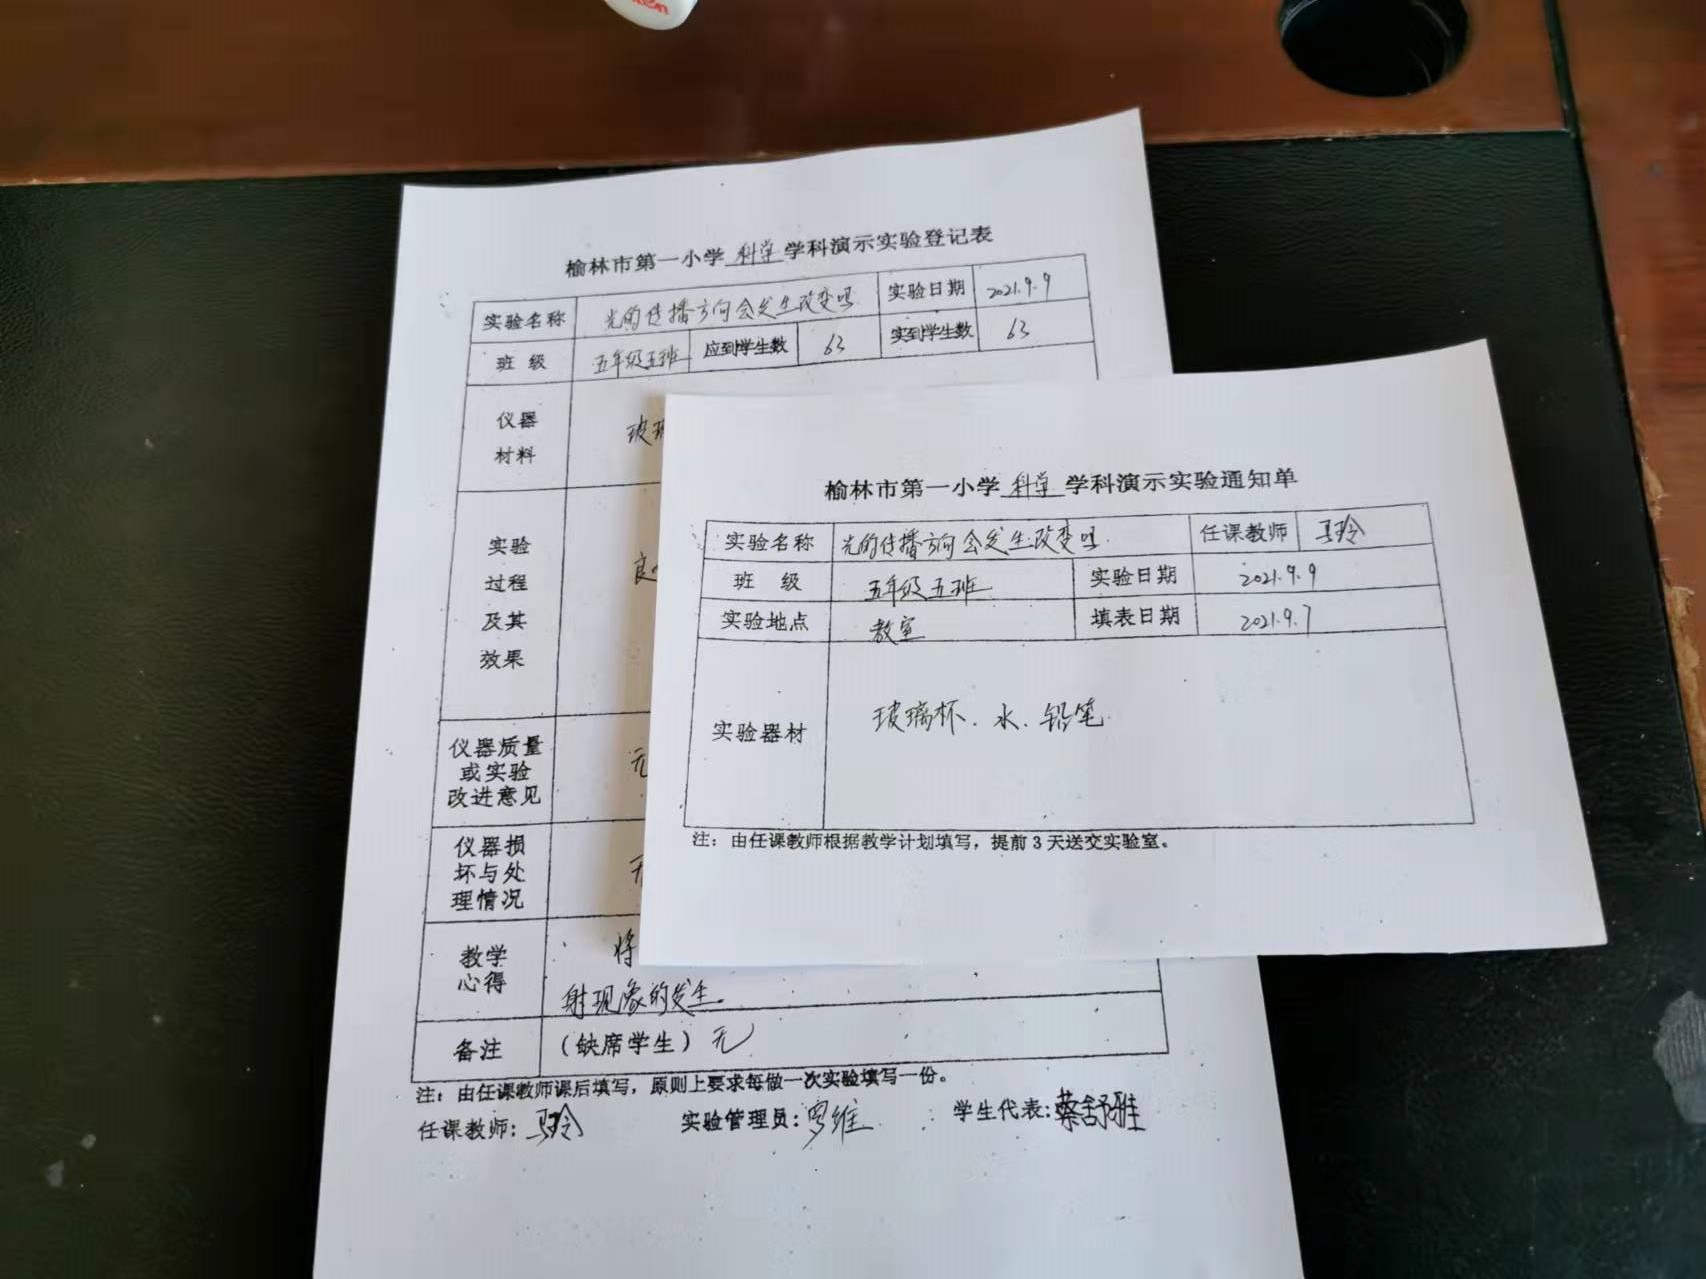 榆林市第一小学 科学 学科演示实验登记表
实验名称 光的传播方向会发生改变吗 实验日期 2021.9.9
班 级 五年级五班 应到学生数 63 实到学生数 63
仪器
材料
玻
实验
过程
及其
效果
仪器质量
或实验
改进意见
无
仪器损
坏与处
理情况
教学
心得
将
射现象的发生。
备注 (缺席学生) 无
注：由任课教师课后填写，原则上要求每做一次实验填写一份。
任课教师：马玲 实验管理员：罗维 学生代表：蔡舒雅
榆林市第一小学 科学 学科演示实验通知单
实验名称 光的传播方向会发生改变吗. 任课教师 马玲
班 级 五年级五班 实验日期 2021.9.9
实验地点 教室 填表日期 2021.9.7
实验器材 玻璃杯、水、铅笔
注：由任课教师根据教学计划填写，提前3天送交实验室。